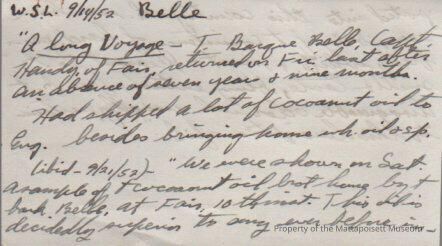 W.S.L. 9/14/52 Belle
"A long Voyage - T Barque Belle, Capt
Handy, of Fair, returned on Fri. last after
an absence of seven years & nine months.
Had shipped a lot of cocoanut oil to
Eng. besides bringing home wh. oil & sp.
(ibid - 9/21/52) - "We were shown on Sat
a sample of t cocoanut oil brot home by t
bark Belle, at Fair, 10th inst. This oil is
decidedly superior to any ever before in-
Property of the Mattapoisett Museum